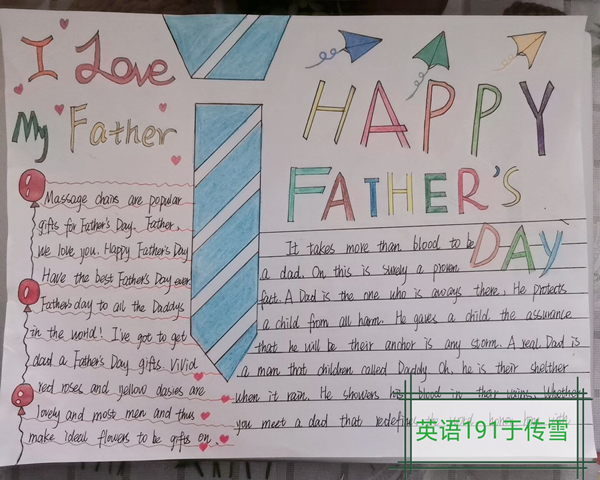 I Love
My Father
HAPPY
FATHER'S
DAY
Massage chairs are popular
gifts for Father's Day. Father,
we love you. Happy Father's Day
Have the best Father's Day ever
Father's day to all the Daddys
in the world! I've got to get
dad a Father's Day gifts Vivid
red roses and yellow dasies are
lovely and most men and thus
make ideal flowers to be gifts on.
It takes more than blood to be
a dad. On this is surely a proven
fact. A Dad is the one who is always there, He protects
a child from all harm. He gaves a child the assurance
that he will be their anchor is any storm. A real Dad is
a man that children called Daddy. Oh, he is their shelther
when it rain. He showers his blood in their vains. Whether
you meet a dad that redefines
英语191于传雪